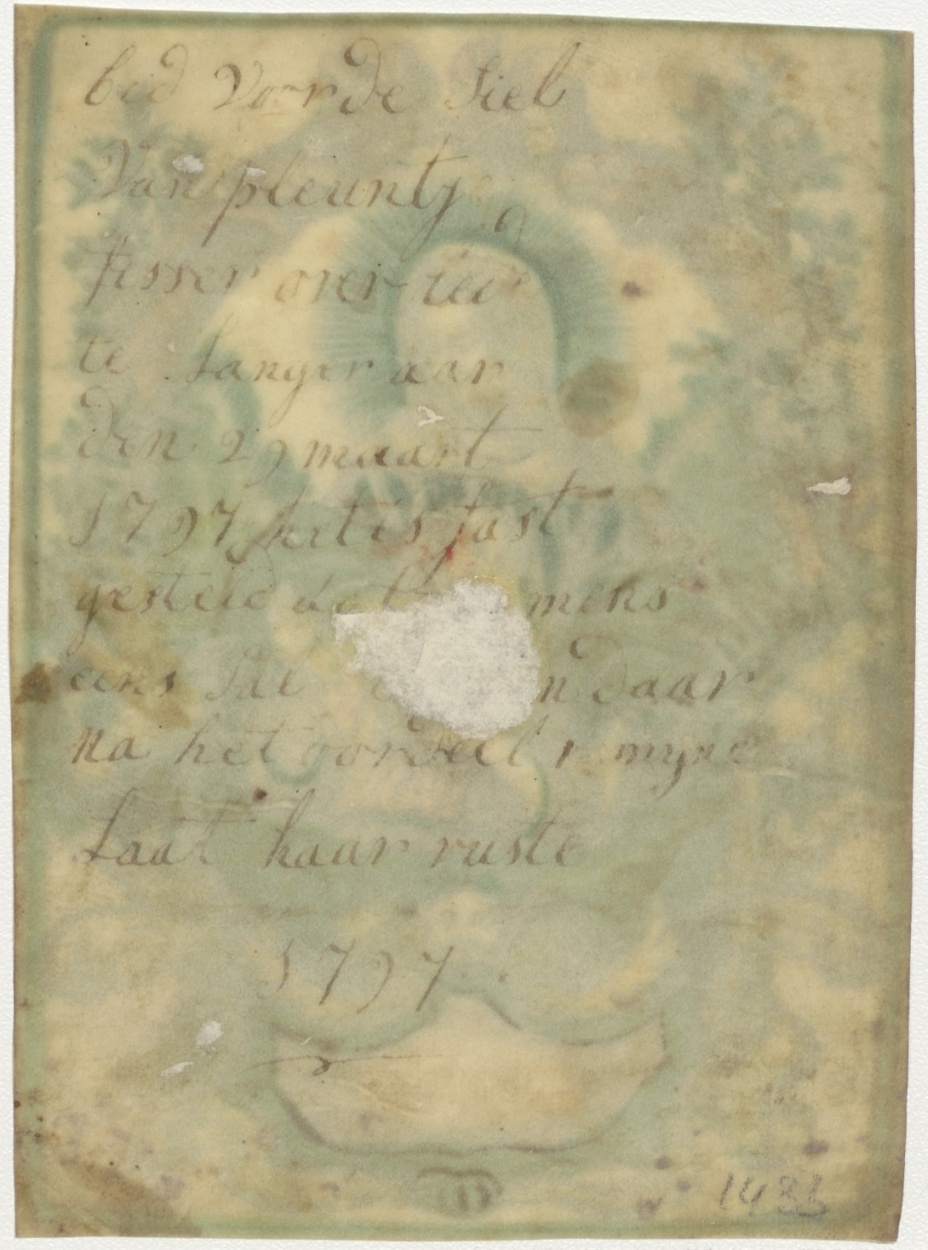 bid Voorde Siel
Van pleuntje
fisser over lee
te Langer aar
den 29 maart
1797 het is fast
gestelt dat mens
eens Sal n daar
na het oordeel myne
Laat haar ruste
1797